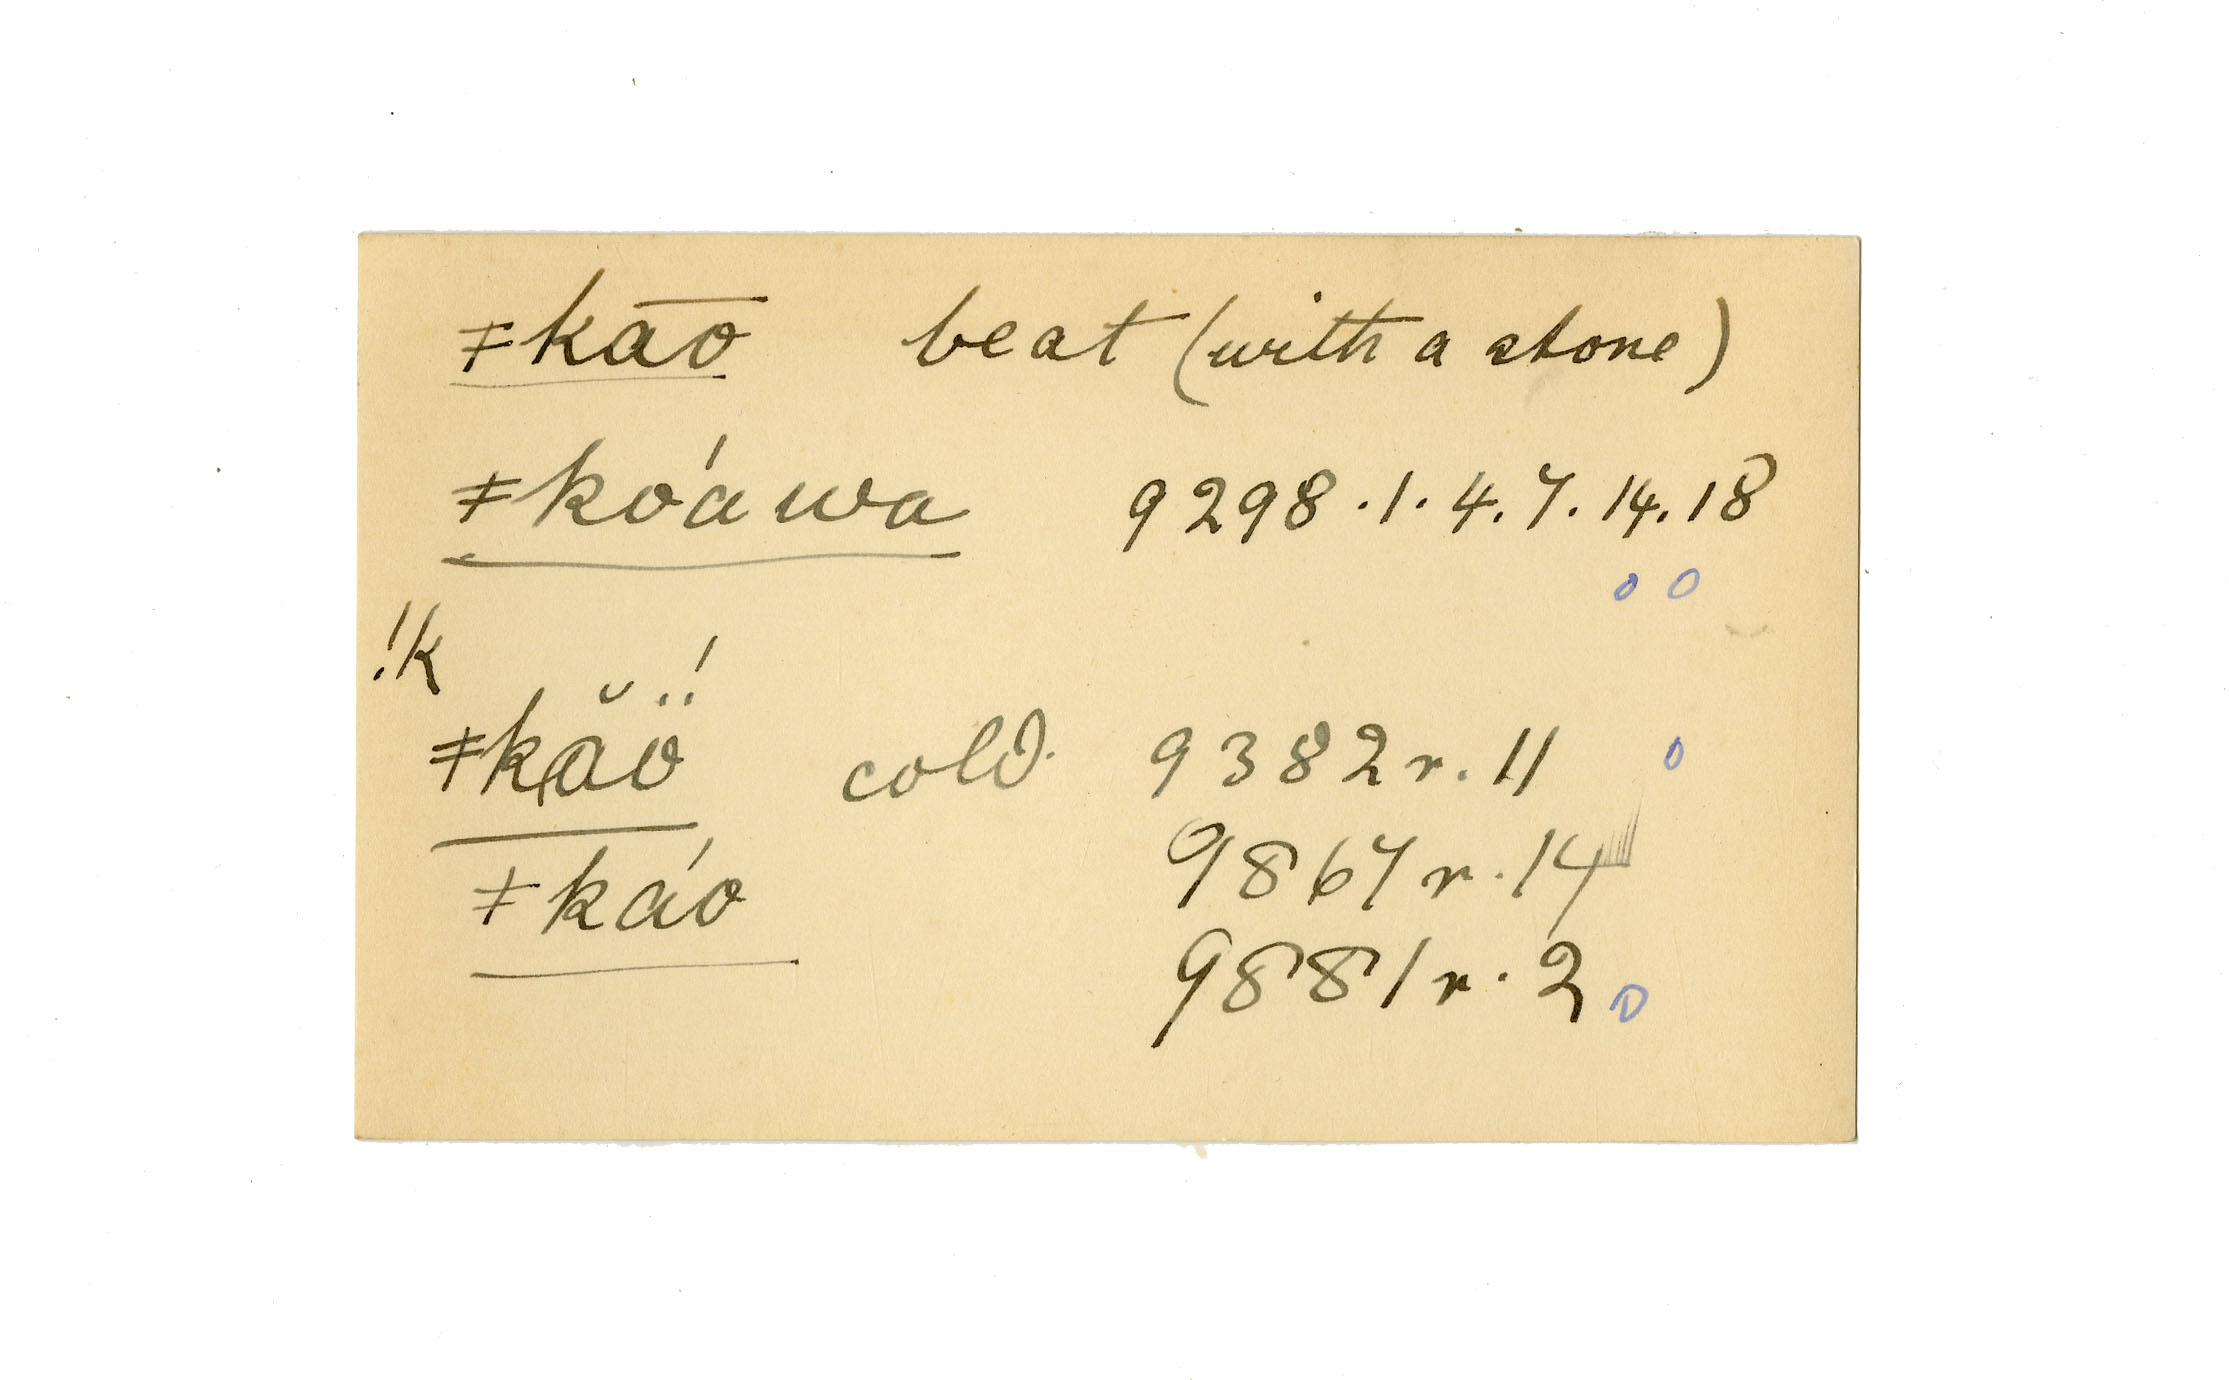 ǂkāō beat (with a stone)
ǂkoáwa 9298.1.4.7.14.18
!k
ǂkăö́ cold. 9382r.11
ǂkáo 9867r.14
9881r.2